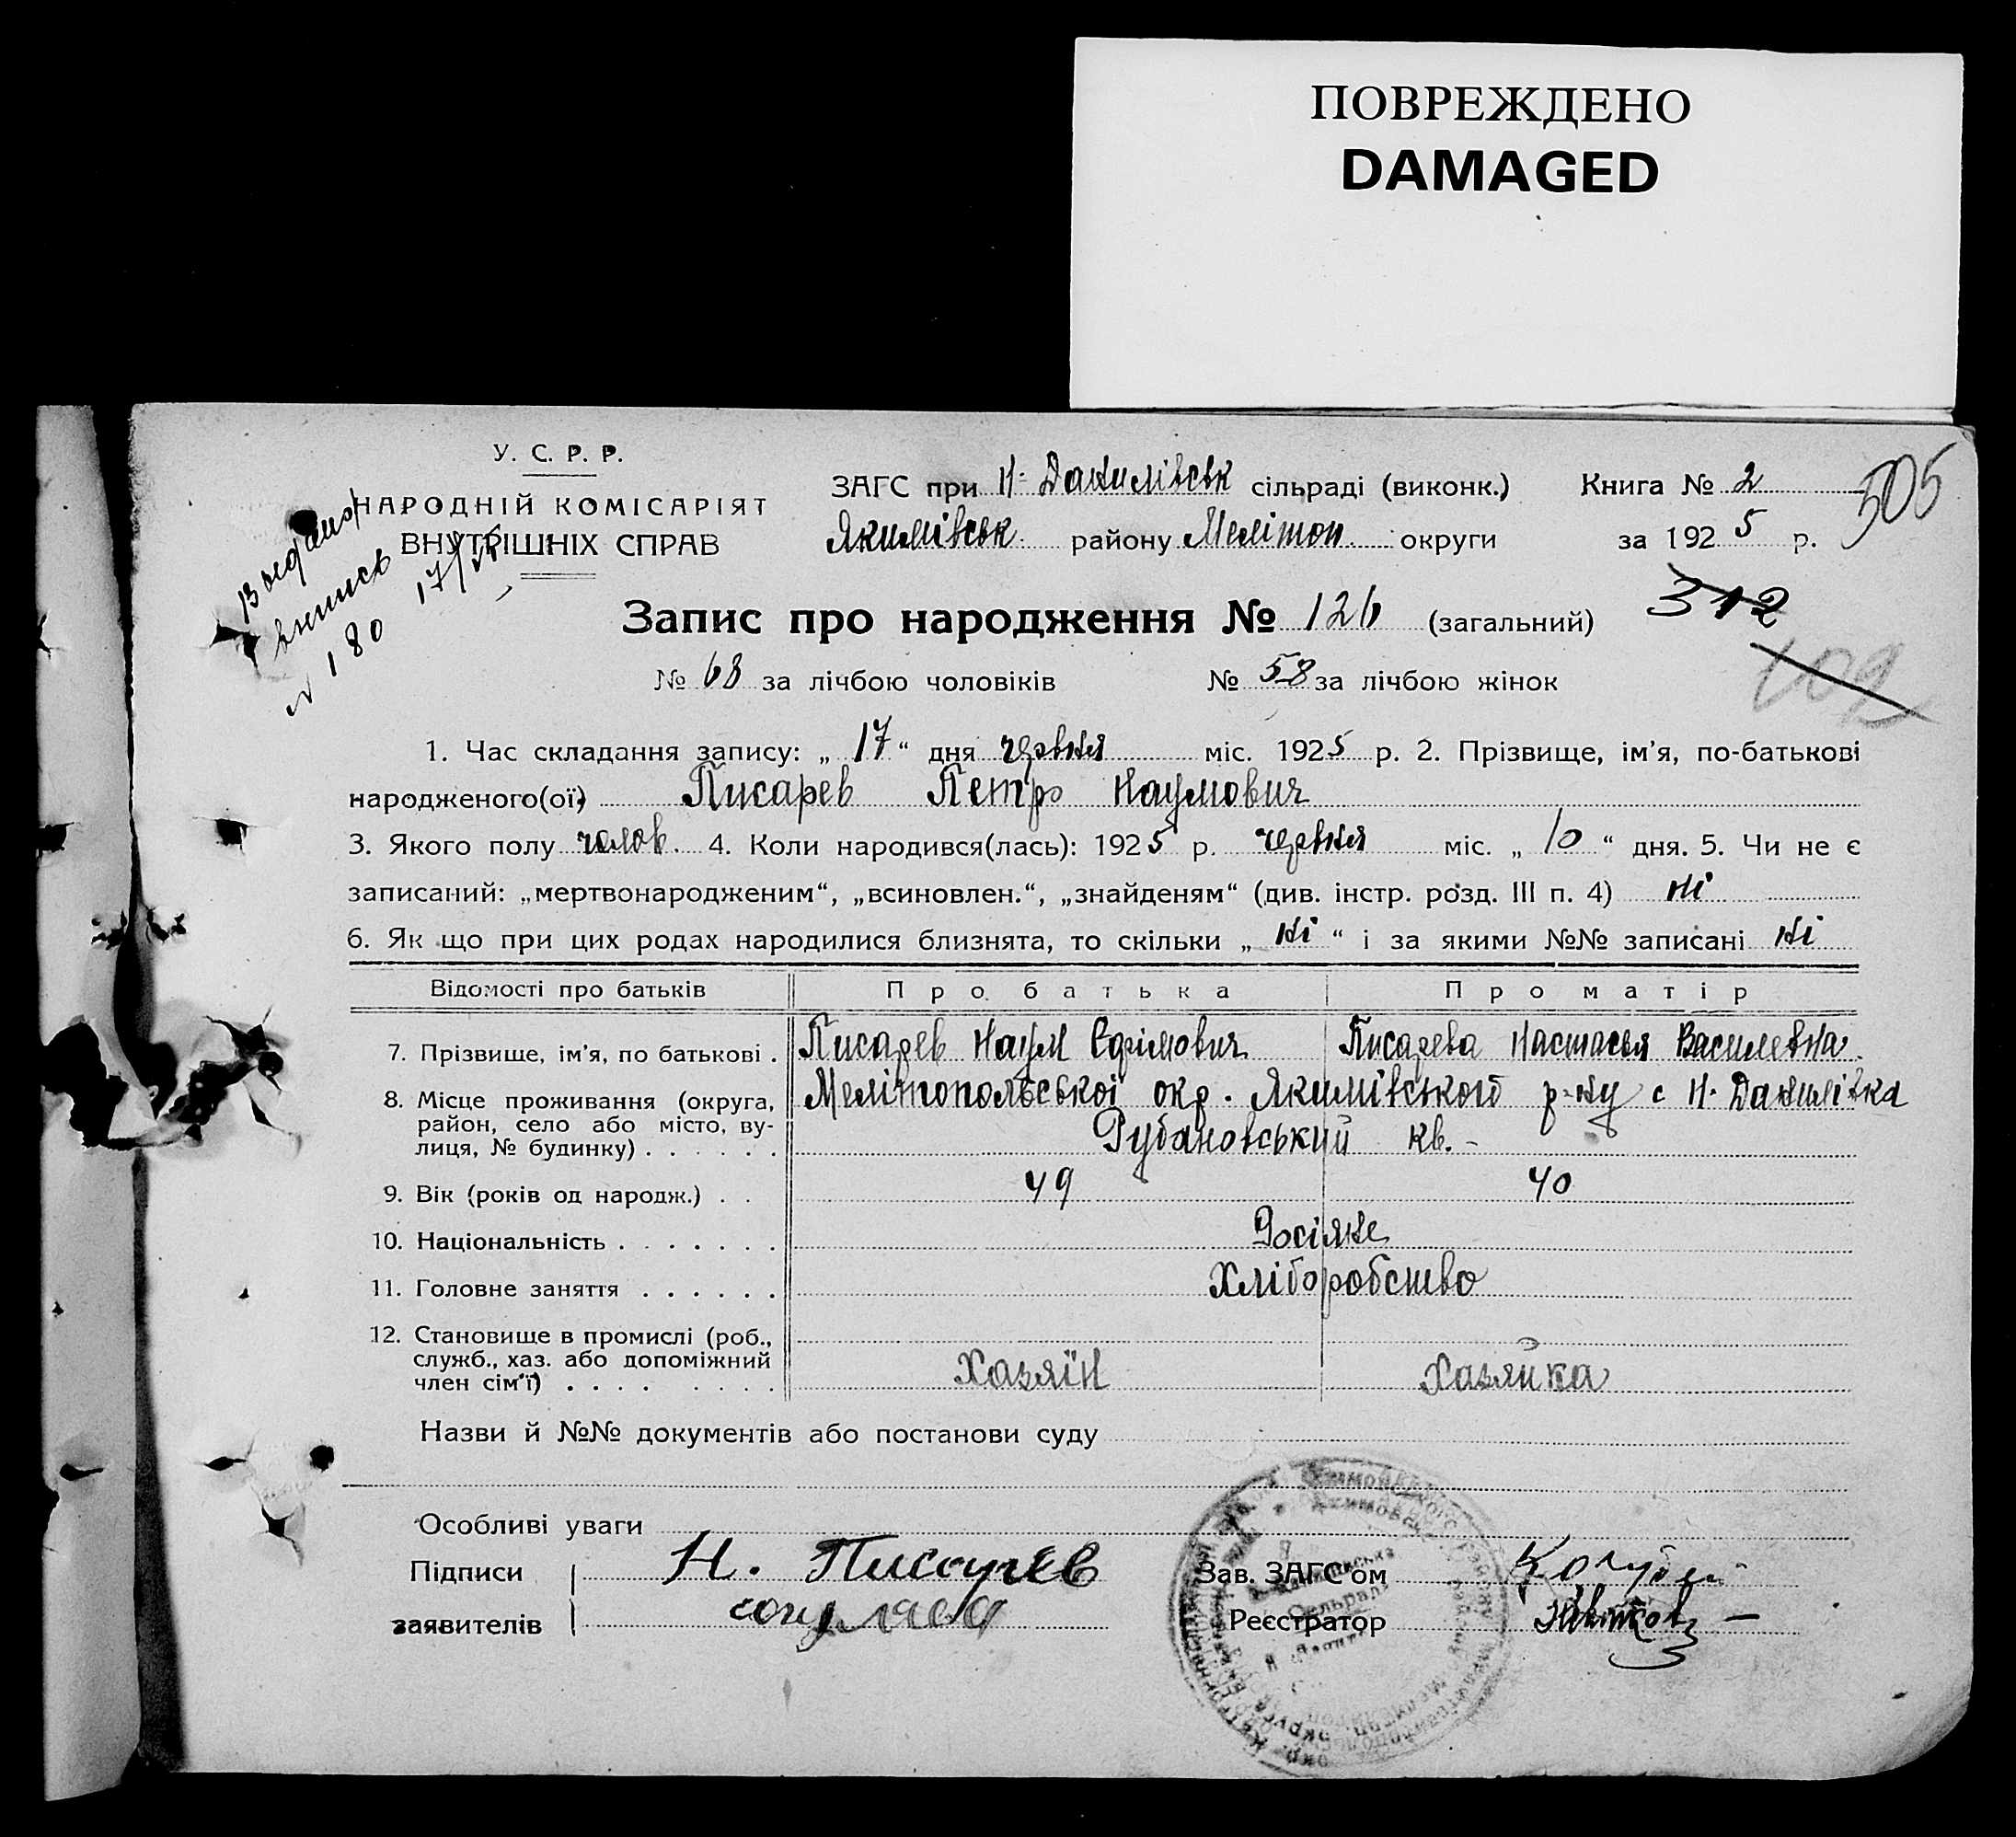 ПОВРЕЖДЕНО
DAMAGED
У. С. Р. Р.
НАРОДНІЙ КОМІСАРІЯТ
ВНУТРІШНІХ СПРАВ
выпись
N 180 17/
ЗАГС при Н-Данилівськ сільраді (виконк.) Книга № 2
505
Якимівськ району Мелітоп. округи за 1925 р.
Запис про народження № 126 (загальний)
312
№ 68 за лічбою чоловіків № 58 за лічбою жінок
109
1. Час складання запису: „ 17 “ дня червня міс. 1925 р. 2. Прізвище, ім’я, по-батькові
народженого(ої) Писарев Петро Наумович
3. Якого полу чолов. 4. Коли народився(лась): 1925 р. червня міс. „ 10 “ дня. 5. Чи не є
записаний: „мертвонародженим“, „всиновлен.“, „знайденям“ (див. інстр. розд. III п. 4) ні
6. Як що при цих родах народилися близнята, то скільки „ ні “ і за якими №№ записані ні
Відомості про батьків Про батька Про матір
7. Прізвище, ім’я, по батькові . Писарев Наум Єфімович Писарева Настасья Василевна
8. Місце проживання (округа, район, село або місто, вулиця, № будинку) . . . . . . Мелітопольської окр. Якимівського р-ну с Н. Данилівка
Рубановський кв. -
9. Вік (років од народж.) . . 49 40
10. Національність . . . . . . . Росіяне
11. Головне заняття . . . . . . Хліборобство
12. Становище в промислі (роб., служб., хаз. або допоміжний член сім’ї) . . . . . . . . Хазяїн Хазяйка
Назви й №№ документів або постанови суду
Особливі уваги
Підписи Н. Писарев Зав. ЗАГС’ом
заявителів Реєстратор